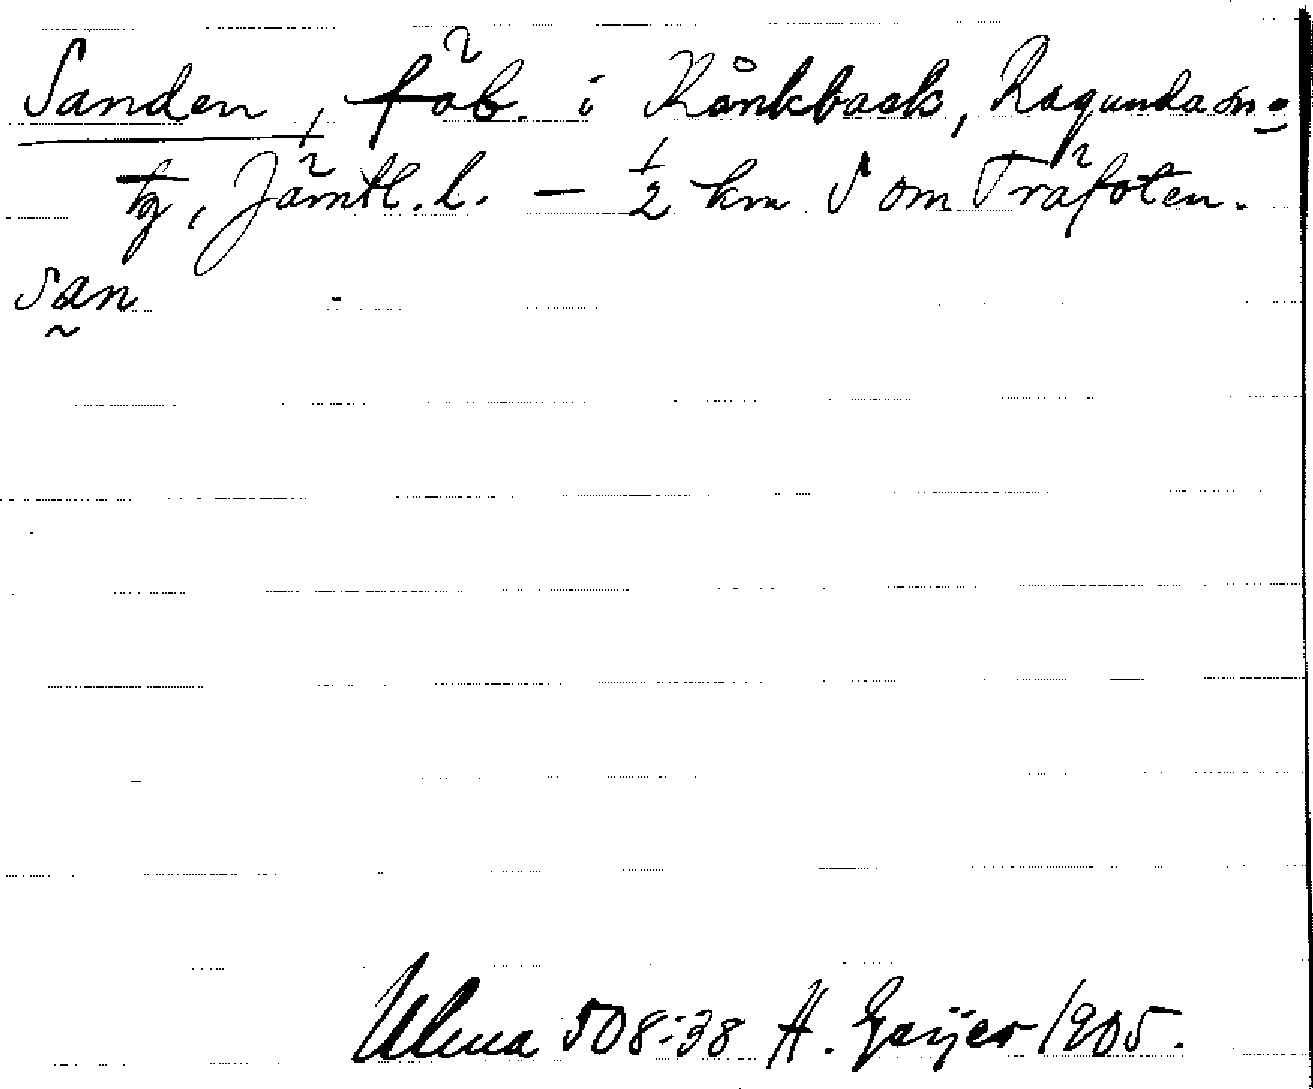 Sanden, fäb. i Kånkback, Ragundasn=
tg, Jämtl. l. — 1/2 km S om Träfoten.
san
Ulma 508:38 H. Geijer 1905.